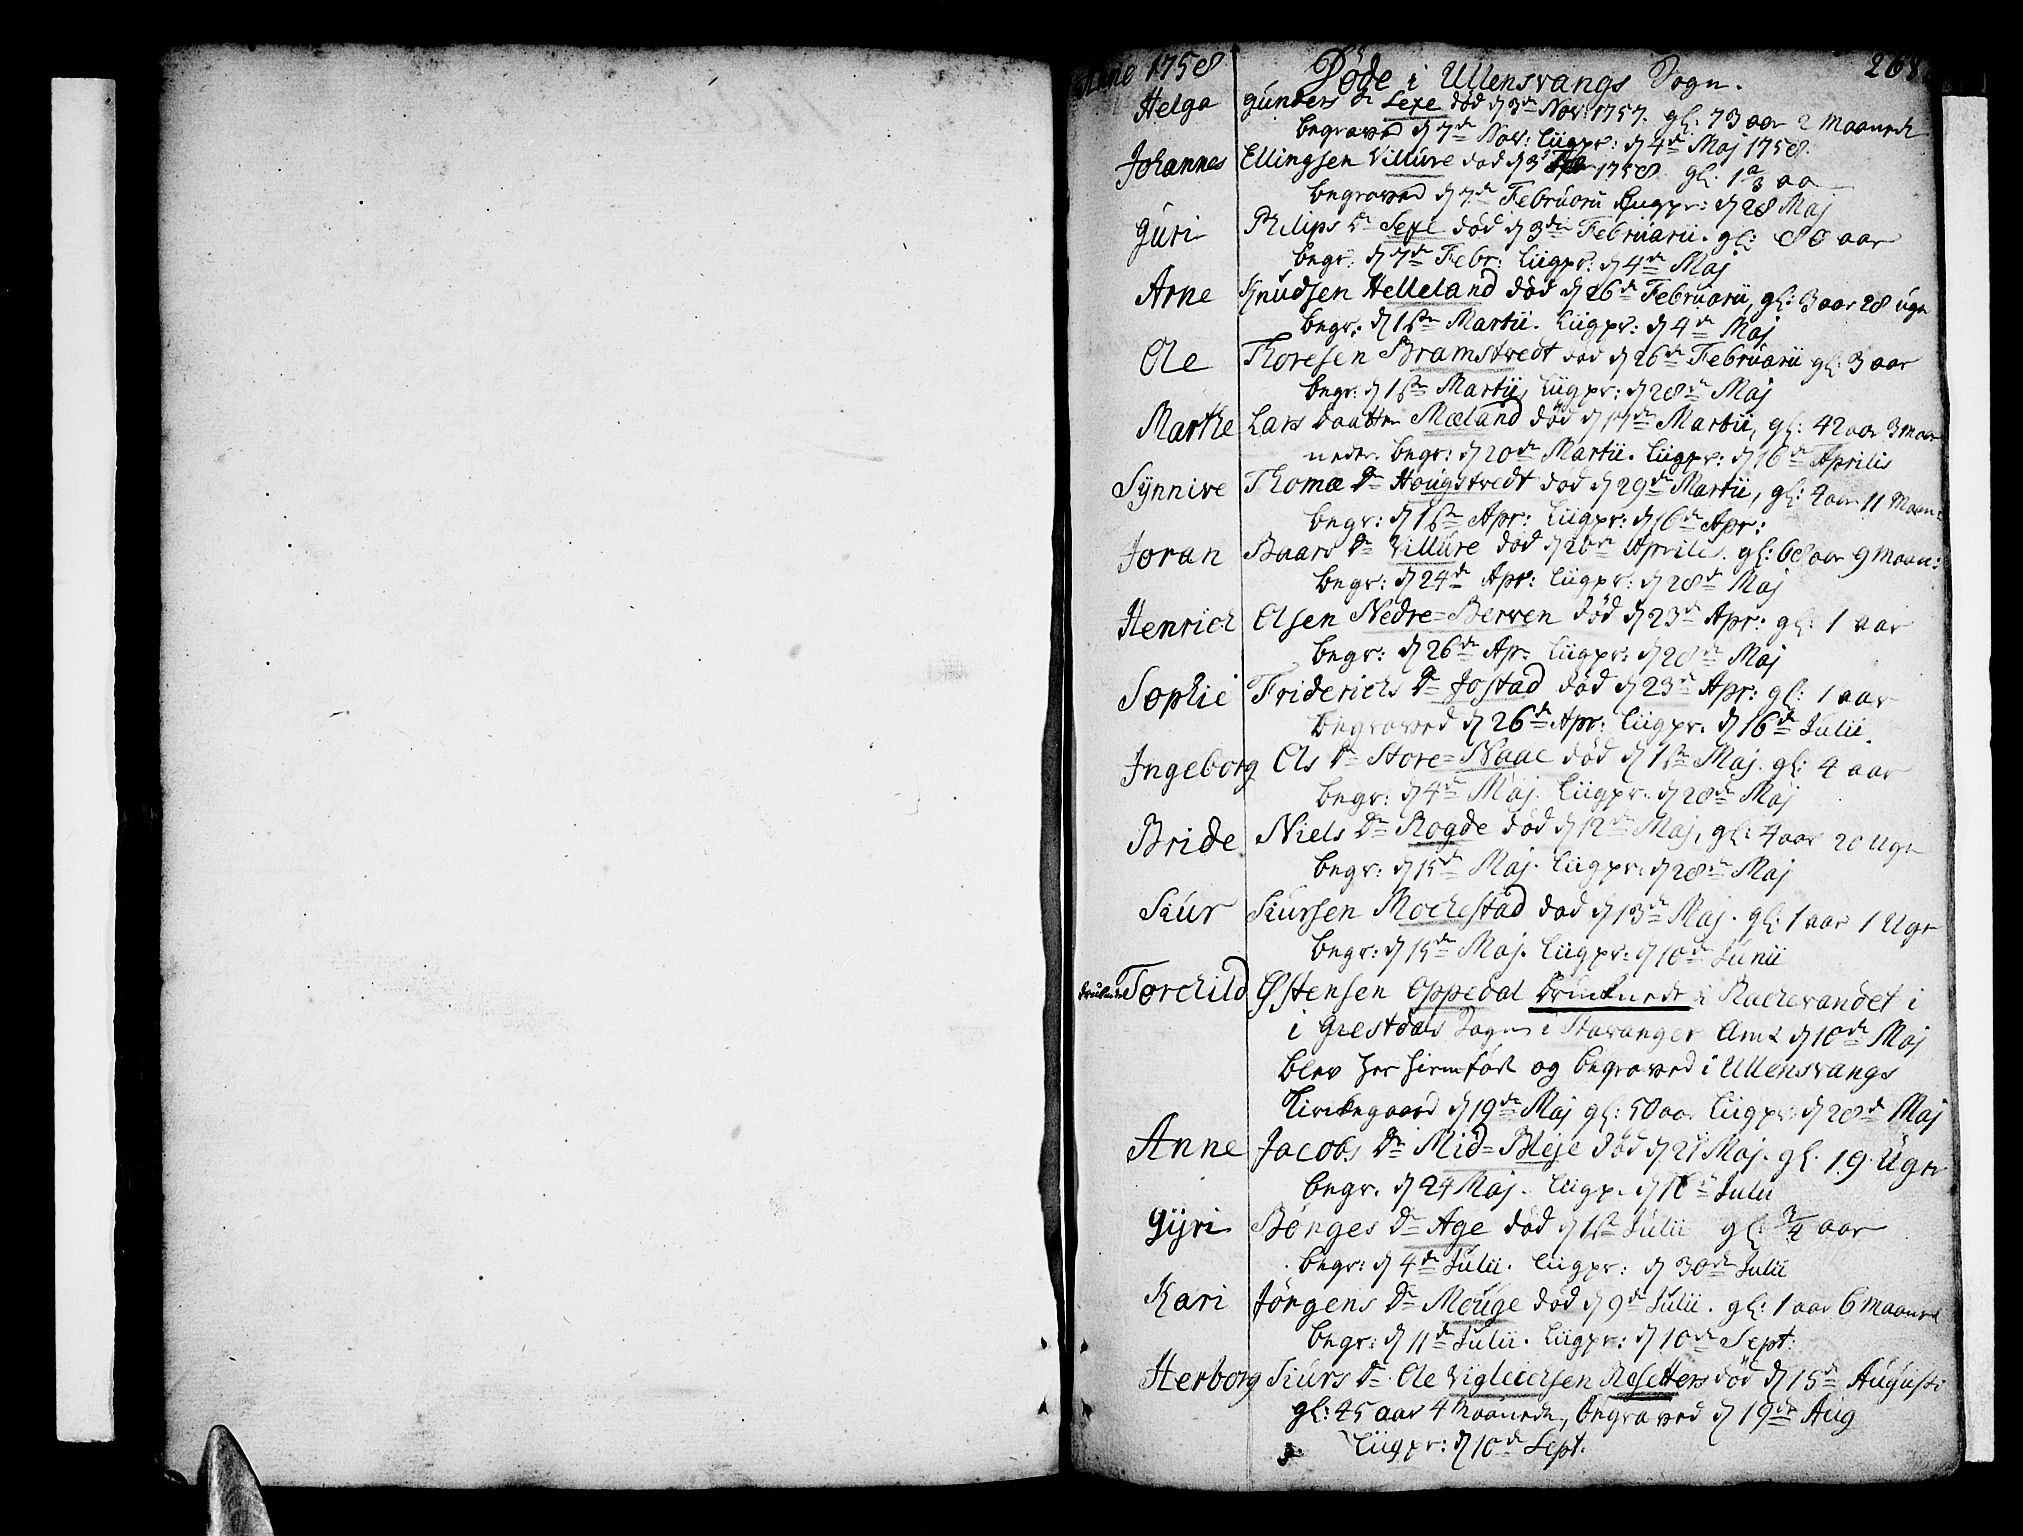 Anno 1758 Døde i Ullensvangs Sogn. 268.
Helga Gunders D Sexe død d 3de Nov: 1757. gl: 73 aar 2 Maaneder
begraved d 7de Nov: Liigpr: d 4de Maj 1758.
Johannes Ellingsen Villure død d 3 1758. gl. 1
begraved d 7de Februarii Liigpr: d 28 Maj
Guri Philips D Sexe død d 3die Februarii. gl: 80 aar
begr: d 7de Febr: Liigpr: d 4de Maj
Arne Knudsen Helleland død d 26de Februarii, gl: 3 aar 28 Uger
begr: d 1ste Martii. Liigpr: d 4de Maj
Ole Thoresen Bramstvedt død d 26de Februarii gl: 3 aar
begr: d 1ste Martii, Liigpr: d 28de Maj
Marthe Lars Daatter Mæland død d 17de Martii, gl: 42 aar 3 Maa
neder. begr: d 20de Martii. Liigpr: d 16de Aprilis
Synnive Thomæ Dr Hougstvedt død d 29de Martii, gl: 4 aar 11 Maan:
begr: d 1ste Apr: Liigpr: d 16de Apr:
Joran Baars Dr Villure død d 20de Aprilis. gl: 68 aar 9 Maan:
begr: d 24de Apr: Liigpr: d 28de Maj
Henrich Olsen Nedre=Berven død d 23de Apr: gl: 1 aar
begr: d 26de Ap: Liigpr: d 28de Maj
Sophie Friderichs Dr Jostad død d 23de Apr: gl: 1 aar
begraved d 26de Apr: Liigpr: d 16de Julii.
Ingeborg Ols Dr Store=Naae død d 1ste Maj. gl: 4 aar
begr: d 4de Maj. Liigpr: d 28de Maj
Bride Niels Dr Rogde død d 12de Maj, gl: 4 aar 20 Uger
begr: d 15de Maj. Liigpr: d 28de Maj
Siur Siursen Mochestad død d 13de Maj. gl: 1 aar 1 Uger
begr: d 15de Maj. Liigpr: d 10de Junii
Torchild Østensen Oppedal Druknede i Rachevandet i
i Giestdals Sogn i Stavanger Amt d 10de Maj
blev her hiemført og begraved i Ullensvangs
Kirckegaard d 19de Maj gl: 50 aar Liigpr: d 28de Maj
Anne Jacobs Dr Mid=Bleje død d 21 Maj. gl. 19 Uger
begr. d 24 Maj. Liigp. d 16de Julii
Gyri Børges Dr Age død d 1ste Julii gl: 3/4 aar
begr: d 4de Julii. Liigpr: d 30de Julii
Kari Jørgens Dr Mouge død d 9de Julii. gl: 1 aar 6 Maaned
begr: d 11de Julii. Liigpr: d 10de Sept:
Herborg Siurs Dr. Ole Vigleicsen død d 15de Augusti
gl: 45 aar 4 Maaneder, begraved d 19de Aug
Liigpr: d 10de Sept.